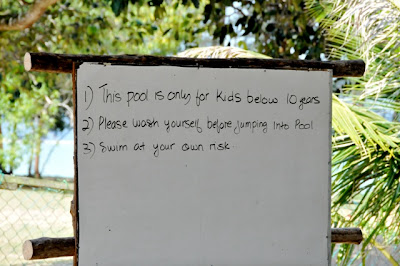 1) This pool is only for kids below 10 years
2) Please wash yourself before jumping into Pool
3) Swim at your own risk